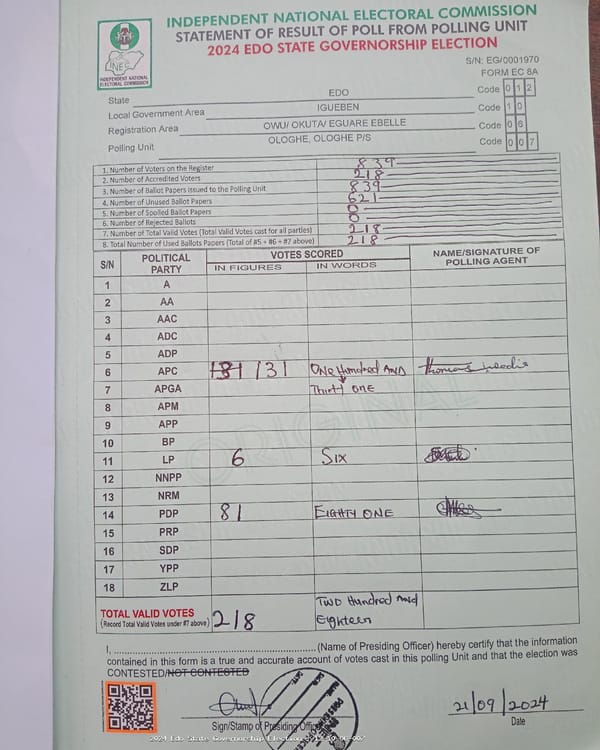 INDEPENDENT NATIONAL ELECTORAL COMMISSION
STATEMENT OF RESULT OF POLL FROM POLLING UNIT
2024 EDO STATE GOVERNORSHIP ELECTION
INEC
INDEPENDENT NATIONAL
ELECTORAL COMMISSION
S/N: EG/0001970
FORM EC 8A
State EDO Code 0 1 2
Local Government Area IGUEBEN Code 1 0
Registration Area OWU/ OKUTA/ EGUARE EBELLE Code 0 6
Polling Unit OLOGHE, OLOGHE P/S Code 0 0 7
1. Number of Voters on the Register 839
2. Number of Accredited Voters 218
3. Number of Ballot Papers issued to the Polling Unit 839
4. Number of Unused Ballot Papers 621
5. Number of Spoiled Ballot Papers 0
6. Number of Rejected Ballots 0
7. Number of Total Valid Votes (Total Valid Votes cast for all parties) 218
8. Total Number of Used Ballots Papers (Total of #5 + #6 + #7 above) 218
S/N POLITICAL PARTY VOTES SCORED NAME/SIGNATURE OF POLLING AGENT
IN FIGURES IN WORDS
1 A
2 AA
3 AAC
4 ADC
5 ADP
6 APC 131 One Hundred And
7 APGA Thirty one
8 APM
9 APP
10 BP
11 LP 6 SIX
12 NNPP
13 NRM
14 PDP 81 EIGHTY ONE
15 PRP
16 SDP
17 YPP
18 ZLP
ORIGINAL
TOTAL VALID VOTES 218 Two Hundred And
(Record Total Valid Votes under #7 above) Eighteen
I, ...........................................................(Name of Presiding Officer) hereby certify that the information
contained in this form is a true and accurate account of votes cast in this polling Unit and that the election was
CONTESTED/NOT CONTESTED
21/09/2024
Sign/Stamp of Presiding Officer Date